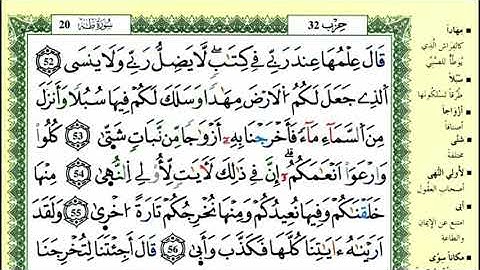 حِزب 32
سُورَةُ طه 20
قَالَ عِلْمُهَا عِندَ رَبِّي فِي كِتَٰبٍ لَّا يَضِلُّ رَبِّي وَلَا يَنسَى 52
ٱلذِے جَعَلَ لَكُمُ ٱلَارْضَ مِهَٰداً وَسَلَكَ لَكُمْ فِيهَا سُبُلًا وَأَنزَلَ
مِنَ ٱلسَّمَآءِ مَآءً فَأَخْرَجْنَا بِهِۦٓ أَزْوَٰجاً مِّن نَّبَاتٍ شَتَّىٰ 53 كُلُوا
وَٱرْعَوَا اَنْعَٰمَكُمُۥٓ إِنَّ فِي ذَٰلِكَ لَأٓيَٰتٍ لِّأُوْلِي ٱلنُّهَىٰ 54 مِنْهَا
خَلَقْنَٰكُمْ وَفِيهَا نُعِيدُكُمْ وَمِنْهَا نُخْرِجُكُمْ تَارَةً اُخْرَىٰ 55 وَلَقَدَ
اَرَيْنَٰهُ ءَايَٰتِنَا كُلَّهَا فَكَذَّبَ وَأَبَىٰ 56 قَالَ أَجِئْتَنَا لِتُخْرِجَنَا
مِهَاداً
كَالفِرَاشِ الَّذِي
يُوَطَّأُ لِلصَّبِيِّ
سُبُلاً
طُرُقاً تَسْلُكُونَهَا
أزواجاً
أصنافاً
شتى
مختلفة
لأولي النهى
أصحاب العقول
أبى
امتنع عن الإيمان
والطاعة
مكاناً سوًى